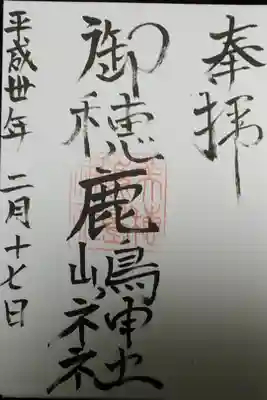 奉拝
御穂鹿嶋神社
平成卅年 二月十七日